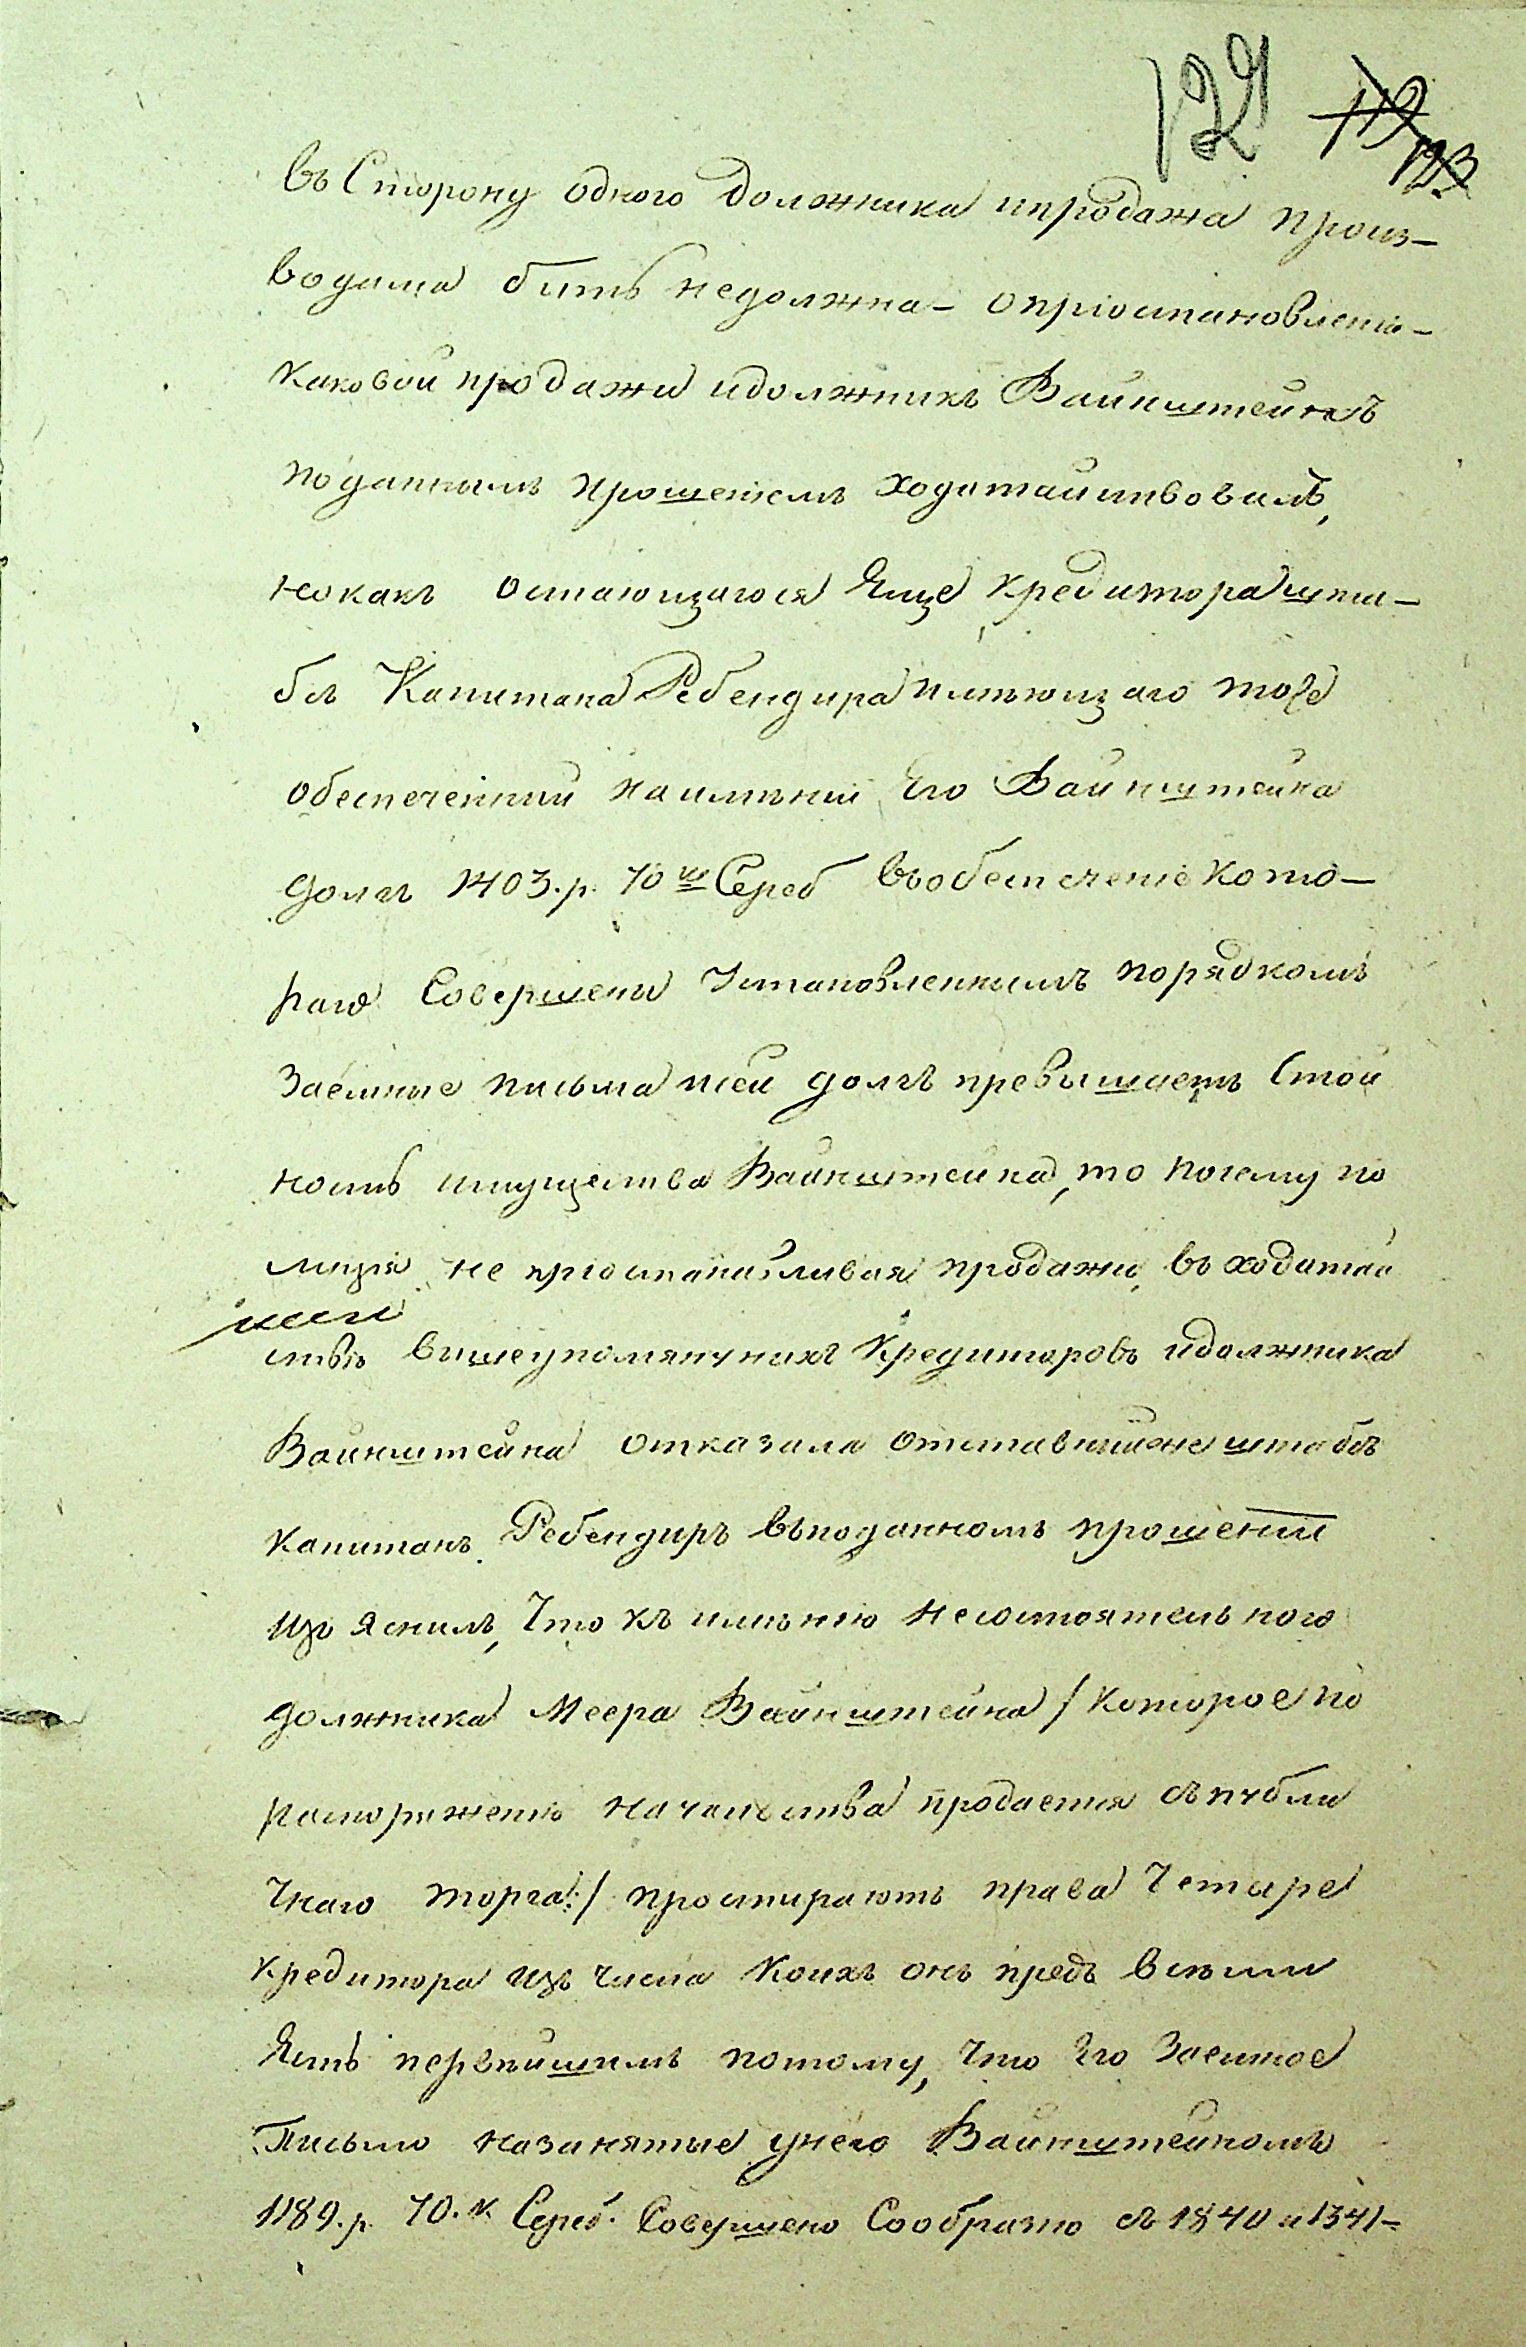 129 119 123
въ Сторону одного должника ипродажа произ-
водима бить недолжна – опріостановленіи-
каковой продажи идолжникъ Вайнштейнъ
поданнымъ прошеніемъ ходатайствовалъ,
нокакъ остающагося Яще кредитора шта-
бсъ Капитана Ребендира имѣющаго тоже
обеспеченний наимѣніи Его Вайнштейна
долгъ 1403. р. 70 к Сереб въобеспеченіе кото-
раго Совершены Установленнымъ порядкомъ
Заемные письма исей долгъ превышаетъ Стой
ность имущества Вайнштейна, то почему по
лиція не пріостанавливая продажи, въ ходатай
ствѣ вишеупомянутихъ Кредиторовъ идолжника
Вайнштейна отказала отставнийже штабсъ
капитанъ Ребендиръ въподанномъ прошеніи
изъяснилъ, Что къ имѣнію несостоятельного
должника Меера Вайнштейна / которое по
распоряженію начальства продается съ публи
Чнаго торга:/ простираютъ права Четыре
кредитора изъ числа коихъ онъ предъ всѣми
Ясть первѣйшимъ потому, что Его Заемное
Письмоназанятые унего Вайнштейномъ
1189. р. 70. к Сереб. Совершено Сообразно съ 1840 и 1341-